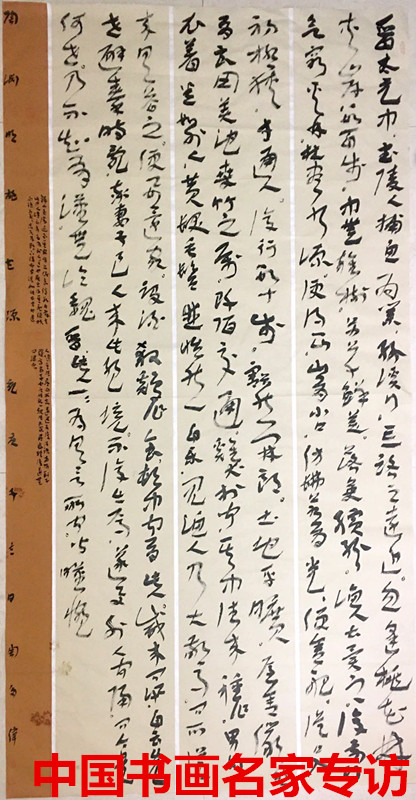 晋太元中武陵人捕鱼为业缘溪行忘路之远近忽逢桃花林
夹岸数百步中无杂树芳草鲜美落英缤纷渔人甚异之复前行
欲穷其林林尽水源便得一山山有小口仿佛若有光便舍船从口
初极狭才通人复行数十步豁然开朗土地平旷屋舍俨然
有良田美池桑竹之属阡陌交通鸡犬相闻其中往来种作男女
衣着悉如外人黄发垂髫并怡然自乐见渔人乃大惊问所从
来具答之便要还家设酒杀鸡作食村中闻有此人咸来问讯自云先世
避秦时乱率妻子邑人来此绝境不复出焉遂与外人间隔问今是
何世乃不知有汉无论魏晋此人一一为具言所闻皆叹惋
陶渊明桃花源
中国书画名家专访